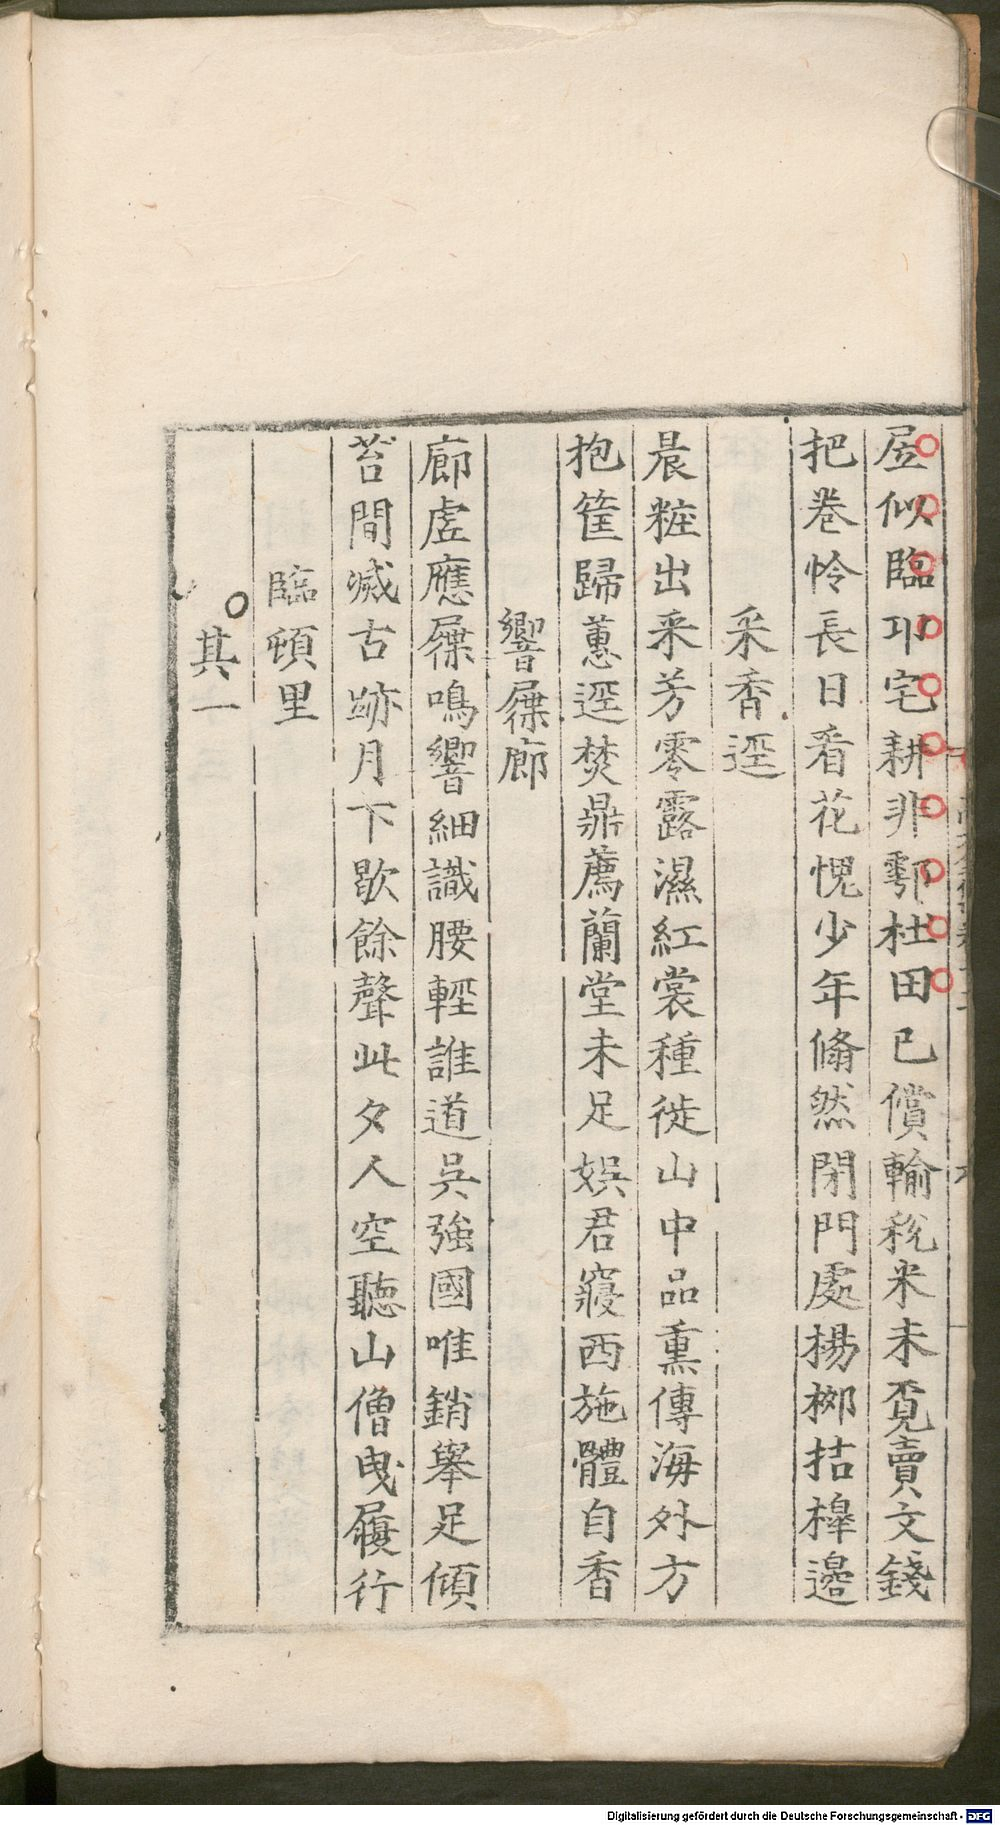 居似臨卭宅耕非鄠杜田已償輸稅米未覓賣文錢
把卷怜長日看花愧少年翛然閉門處楊桺拮槔邊
采香逕
晨粧出采芳零露濕紅裳種徙山中品熏傳海外方
抱筐歸蕙逕焚鼎薦蘭堂未足娛君寢西施體自香
響屧廊
廊虛應屧鳴響細識腰輕誰道吳強國唯銷舉足傾
苔間滅古跡月下歇餘聲此夕人空聽山僧曳履行
臨頓里
其一
Digitalisierung gefördert durch die Deutsche Forschungsgemeinschaft - DFG